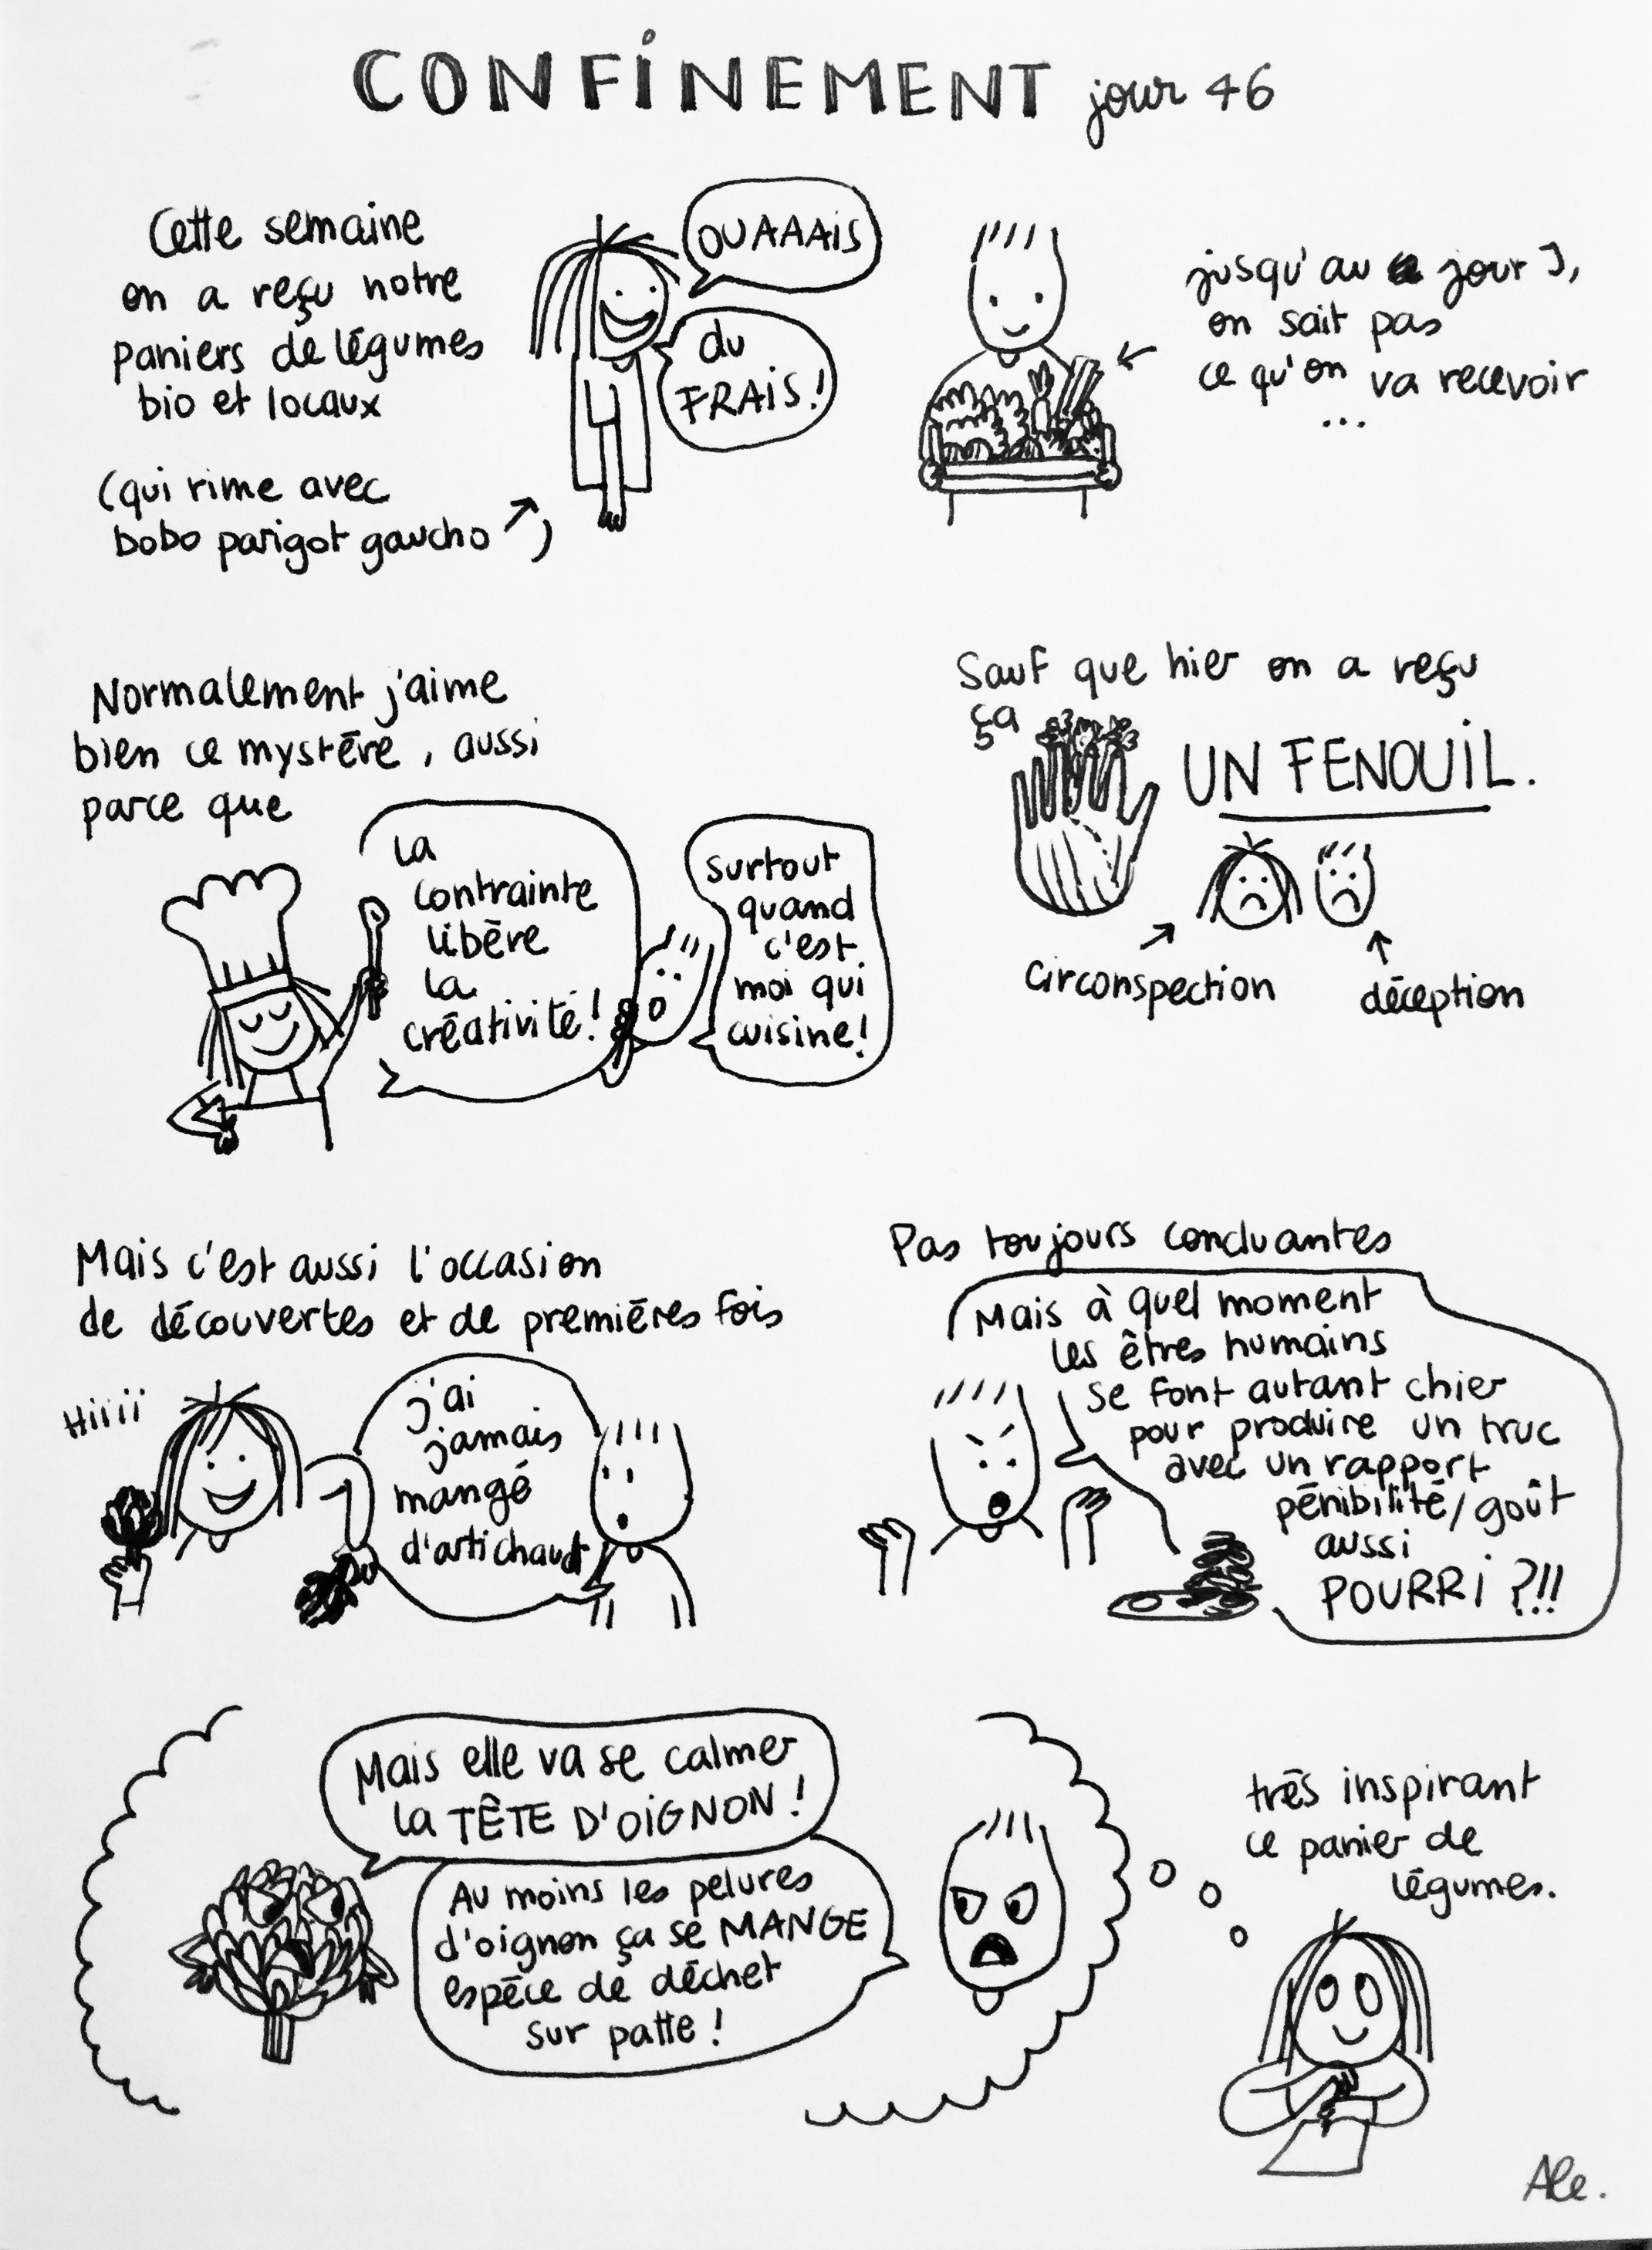 CONFINEMENT jour 46
Cette semaine
on a reçu notre
paniers de légumes
bio et locaux
(qui rime avec
bobo parigot gaucho )
OUAAAIS
du
FRAIS!
jusqu'au jour J,
on sait pas
ce qu'on va recevoir
...
Normalement j'aime
bien ce mystère, aussi
parce que
la
contrainte
libère
la
créativité!
surtout
quand
c'est
moi qui
cuisine!
Sauf que hier on a reçu
ça
UN FENOUIL.
circonspection
déception
Mais c'est aussi l'occasion
de découvertes et de premières fois
Hiiii
j'ai
jamais
mangé
d'artichaut
Pas toujours concluantes
Mais à quel moment
les êtres humains
se font autant chier
pour produire un truc
avec un rapport
pénibilité/goût
aussi
POURRI ?!!
Mais elle va se calmer
la TÊTE D'OIGNON!
Au moins les pelures
d'oignon ça se MANGE
espèce de déchet
sur patte!
très inspirant
ce panier de
légumes.
Ale.